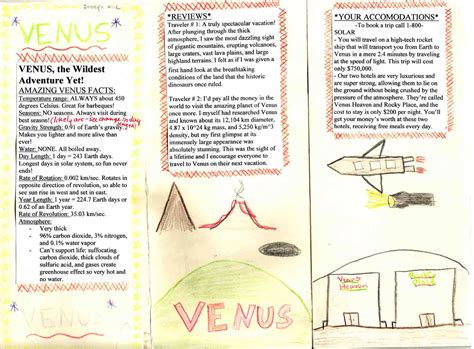 VENUS
VENUS, the Wildest
Adventure Yet!
AMAZING VENUS FACTS:
Temperature range: ALWAYS about 450
degrees Celsius. Great for barbeques!
Seasons: NO seasons. Always visit during
hot season!
Gravity Strength: 0.91 of Earth's gravity.
Makes you lighter and more alive than
ever!
Water: NONE. All boiled away.
Day Length: 1 day = 243 Earth days.
Longest days in solar system, so fun never
ends!
Rate of Rotation: 0.002 km/sec. Rotates in
opposite direction of revolution, so able to
see sun rise in west and set in east.
Year Length: 1 year = 224.7 Earth days or
0.62 of an Earth year.
Rate of Revolution: 35.03 km/sec.
Atmosphere:
- Very thick
- 96% carbon dioxide, 3% nitrogen,
and 0.1% water vapor
- Can't support life: suffocating
carbon dioxide, thick clouds of
sulfuric acid, and gases create
greenhouse effect so very hot and
no water.
VENUS
*REVIEWS*
Traveler # 1: A truly spectacular vacation!
After plunging through the thick
atmosphere, I saw the most dazzling sight
of gigantic mountains, erupting volcanoes,
large craters, vast lava plains, and large
highland terrains. I felt as if I was given a
first hand look at the breathtaking
conditions of the land that the historic
dinosaurs once ruled.
Traveler # 2: I'd pay all the money in the
world to visit the amazing planet of Venus
once more. I myself had researched Venus
and known about its 12,104 km diameter,
4.87 x 10^24 kg mass, and 5,250 kg/m^3
density, but my first glimpse at its
immensely large appearance was
absolutely stunning. This was the sight of
a lifetime and I encourage everyone to
travel to Venus on their next vacation.
VENUS
*YOUR ACCOMODATIONS*
-To book a trip call 1-800-
SOLAR
- You will travel on a high-tech rocket
ship that will transport you from Earth to
Venus in a mere 2.4 minutes by traveling
at the speed of light. This trip will cost
only $750,000.
- Our two hotels are very luxurious and
are super strong, allowing them to lie on
the ground without being crushed by the
pressure of the atmosphere. They're called
Venus Heaven and Rocky Place, and the
cost to stay is only $200 per night. You'll
get your money's worth at these two
hotels, receiving free meals every day.
Venus
Heaven
Rocky
Place